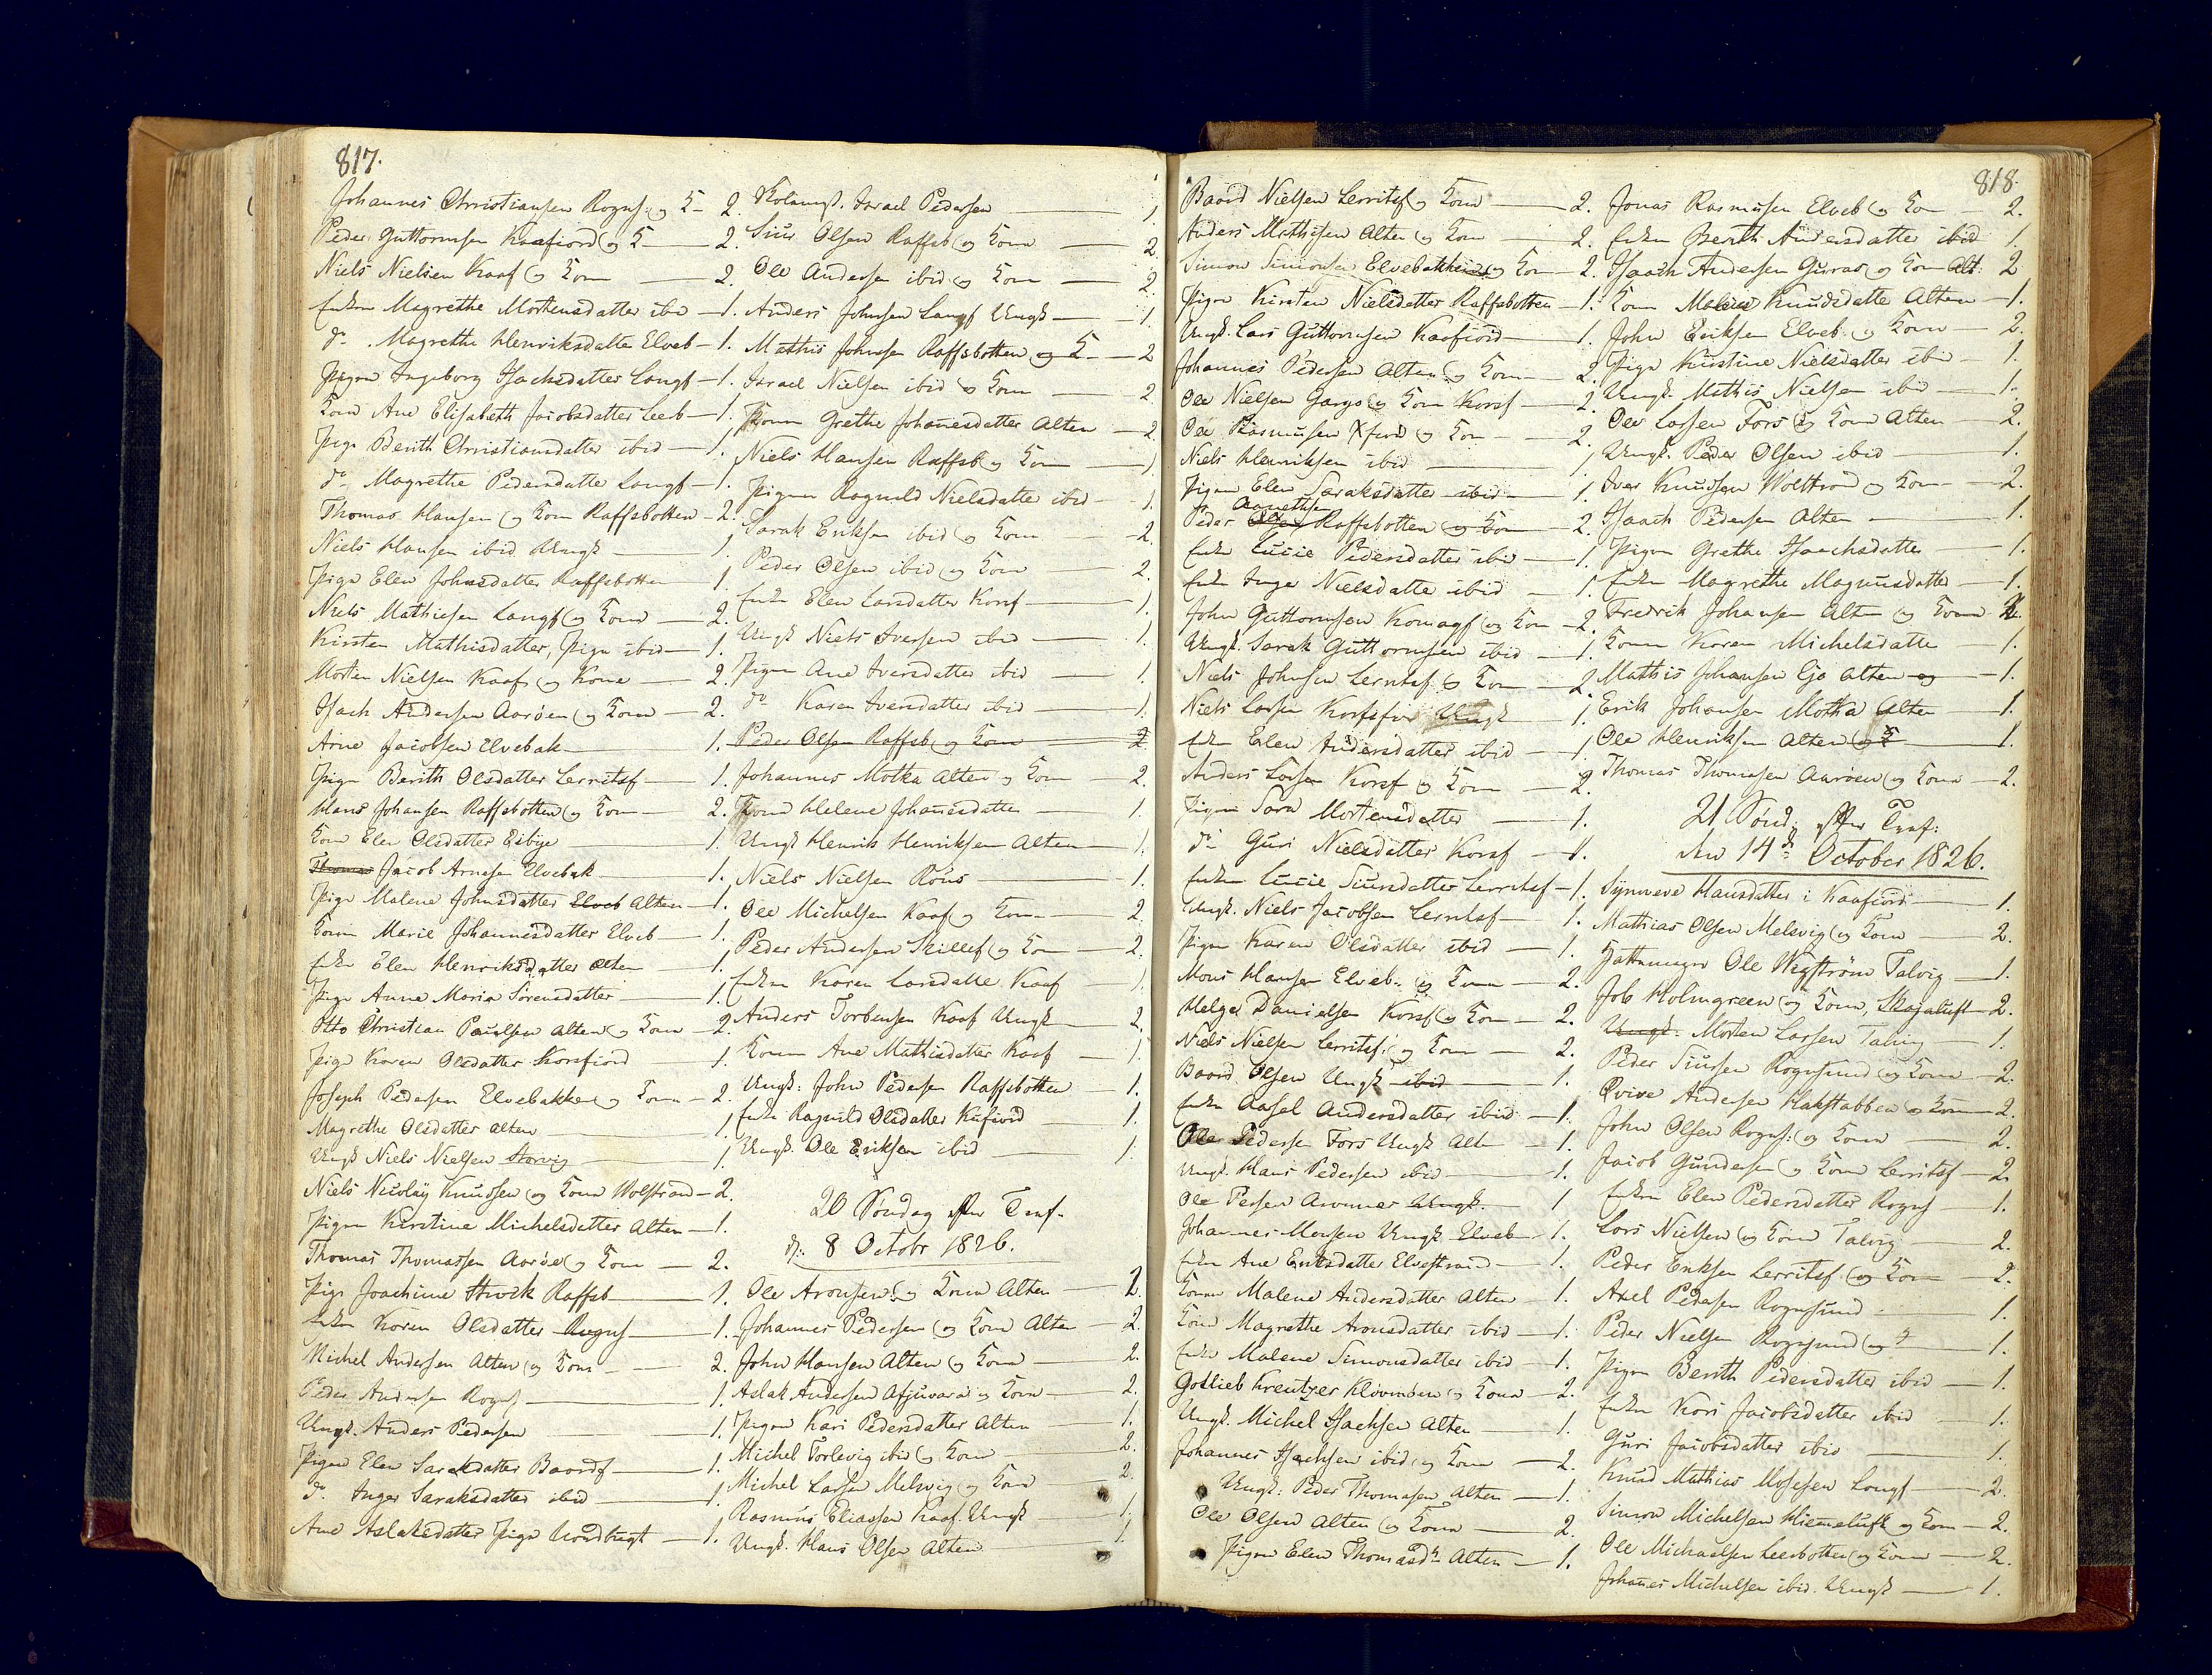 817.
Johannes Christiansen Rogns: og K – 2.
Peder Guttormsen Kaafiord og K – 2.
Niels Nielsen Kaaf og Kone – 2.
Enken Magrethe Mortensdatter ibid – 1.
do Magrethe Henriksdatter Elveb – 1.
Pigen Ingeborg Isachsdatter Langf – 1.
Kone Ane Elisabeth Jacobsdatter Leeb – 1.
Pige Berith Christiansdatter ibid – 1.
do Magrethe Pedersdatter Langf – 1.
Thomas Hansen og Kone Raffsbotten – 2.
Niels Hansen ibid Ungk – 1.
Pige Elen Johnsdatter Raffsbotten – 1.
Niels Mathiesen Langf og Kone – 2.
Kirsten Mathisdatter, Pige ibid – 1.
Morten Nielsen Kaaf og Kone – 2.
Isach Andersen Aarøen og Kone – 2.
Arne Jacobsen Elvebak – 1.
Pige Berith Olsdatter Lerritsf – 1.
Hans Johansen Raffsbotten og Kone – 2.
Kone Elen Olsdatter Eibye – 1.
Thomas Jacob Arnesen Elvebak – 1.
Pige Malene Johnsdatter Elveb Alten – 1.
Konen Marie Johannesdatter Elveb – 1.
Enke Elen Henriksdatter Alten – 1.
Pige Anne Maria Sørensdatter – 1.
Otto Christian Paulsen Alten og Kone – 2.
Pige Karen Olsdatter Korsfiord – 1.
Joseph Pedersen Elvebakken og Kone – 2.
Magrethe Olsdatter Alten – 1.
Ungk Niels Nielsen Storvig – 1.
Niels Nicolay Knudsen og Kone Wolstrand – 2.
Pigen Kirstine Michelsdatter Alten – 1.
Thomas Thomassen Aarøe og Kone – 2.
Pige Joachime Struck Raffsb – 1.
Enken Karen Olsdatter Rognsf – 1.
Michel Andersen Alten og Kone – 2.
Peder Andersen Rognsf – 1.
Ungk. Anders Pedersen – 1.
Pigen Elen Saraksdatter Baardf – 1.
do Inger Saraksdatter ibid – 1.
Ane Aslaksdatter Pige Nordbugt – 1.
Israel Pedersen – 1.
Siur Olsen Raffsb og Kone – 2.
Ole Andersen ibid og Kone – 2.
Anders Johnsen Langf Ungk – 1.
Mathis Johnsen Raffsbotten og K – 2
Israel Nielsen ibid og Kone – 2
Konen Grethe Johannesdatter Alten – 2.
Niels Hansen Raffsb og Kone – 1
Pigen Ragnild Nielsdatter ibid – 1.
Sarak Eriksen ibid og Kone – 2.
Peder Olsen ibid og Kone – 2.
Enke Elen Larsdatter Korsf – 1.
Ungk Niels Iversen ibid – 1.
Pigen Ane Iversdatter ibid – 1.
do Karen Iversdatter ibid – 1.
Peder Olsen Raffsb og Kone – 2.
Johannes Motka Alten og Kone – 2.
Kone Helene Johannesdatter – 1.
Ungk Henrik Henriksen Alten – 1.
Niels Nielsen Røus – 1.
Ole Michelsen Kaaf og Kone – 2.
Peder Andersen Skillef og Kone – 2.
Enken Karen Larsdatter Kaaf – 1.
Anders Torbensen Kaaf Ungk – 2.
Konen Ane Mathisdatter Kaaf – 1.
Ungk: John Pedersen Raffsbotten – 1.
Enke Ragnild Olsdatter Kufiord – 1.
Ungk. Ole Eriksen ibid – 1.
20 Søndag efter Tref.
d: 8 Octobr 1826.
Ole Aronsen og Kone Alten – 2.
Johannes Pedersen og Kone Alten – 2.
John Hansen Alten og Kone – 2.
Aslak Andersen Afjuvara og Kone – 2.
Pigen Kari Pedersdatter Alten – 1.
Michel Torlevig ibid og Kone – 2.
Michel Larsen Melsvig og Kone – 2.
Rasmus Eliassen Kaaf. Ungk – 1.
Ungk. Hans Olsen Alten – 1.
818.
Baard Nielsen Lerritsf og Kone – 2.
Anders Mathisen Alten og Kone – 2.
Simon Simonsen Elvebakken og Kone – 2.
Pigen Kirsten Nielsdatter Raffsbotten – 1.
Ungk. Lars Guttormsen Kaafiord – 1.
Johannes Pedersen Alten og Kone – 2.
Ole Nielsen Gargo og Kone Korsf – 2.
Ole Rasmusen Xfiord og Kone – 2.
Niels Henriksen ibid – 1.
Pigen Elen Saraksdatter ibid – 1.
Agnethesen
Peder Olsen Raffsbotten og Kone – 2.
Enke Lucie Pedersdatter ibid – 1.
Enke Inger Nielsdatter ibid – 1.
John Guttormsen Komagf og Kone – 2.
Ungk. Sarak Guttormsen ibid – 1.
Niels Johnsen Lerritsf og Kone – 2.
Niels Larsen Korsfior Ungk – 1.
Enke Elen Andersdatter ibid – 1.
Anders Larsen Korsf og Kone – 2.
Pigen Sara Mortensdatter – 1.
do Guri Nielsdatter Korsf – 1.
Enken Lucie Siursdatter Lerritsf – 1.
Ungk. Niels Jacobsen Lerritsf – 1.
Pigen Karen Olsdatter ibid – 1.
Mons Hansen Elveb. og Kone – 2.
Helge Danielsen Korsf og Kone – 2.
Niels Nielsen Lerritsf: og Kone – 2.
Baard Olsen Ungk ibid – 1.
Enke Aasel Andersdatter ibid – 1.
Ole Pedersen Fors Ungk Alten – 1.
Ungk. Hans Pedersen ibid – 1.
Ole Persen Ungk. – 1
Johannes Monsen Ungk Elveb – 1.
Enken Ane Eriksdatter Elvestrand – 1.
Konen Malene Andersdatter Alten – 1.
Kone Magrethe Aronsdatter ibid – 1.
Enke Malene Simonsdatter ibid – 1.
Gotlieb Kreutzer og Kone – 2.
Ungk. Michel Isachsen Alten – 1.
Johannes Isachsen ibid og Kone – 2.
Ungk: Peder Thomasen Alten – 1.
Ole Olsen Alten og Kone – 2.
Pigen Elen Thomasdr Alten – 1.
Jonas Rasmusen Elveb og Kone – 2.
Enken Berith Andersdatter ibid – 1.
Isaach Andersen Guras og Kone Alt: 2
Kone Malene Knudsdatter Alten – 1.
John Eriksen Elveb og Kone – 2.
Pige Kirstine Nielsdatter ibid – 1.
Ungk. Mathis Nielsen ibid – 1.
Ole Larsen Fors og Kone Alten – 2.
Ungk. Peder Olsen ibid – 1.
Iver Knudsen Wolstrand og Kone – 2.
Isaach Pedersen Alten – 1.
Pigen Grethe Isaachsdatter – 1.
Enken Magrethe Magnusdatter – 1.
Fredrik Johansen Alten og Kone
Konen Karen Michelsdatter – 1.
Mathis Johansen Gja Alten og – 1.
Erik Johansen Motka Alten – 1.
Ole Henriksen Alten og K – 1.
Thomas Thomasen Aarøen og Kone – 2.
21 Sønd: efter Tref:
den 14de October 1826.
Synneve Hansdatter i Kaafiord – 1.
Mathias Olsen Melsvig og Kone – 2.
Hattemager Ole Wigstrøm Talvig – 1.
Job Holmgreen og Kone, Skajaluft – 2.
Ungk. Morten Larsen Talvig – 1.
Peder Siursen Rognsund og Kone – 2.
Qvive Andersen Hakstabben og Kone – 2.
John Olsen Rogns: og Kone 2.
Jacob Gundersen og Kone Lerritsf – 2
Enken Elen Pedersdatter Rognsf – 1.
Lars Nielsen og Kone Talvig – 2.
Peder Eriksen Lerritsf og Kone – 2.
Axel Pedersen Rognsund – 1.
Peder Nielsen Rognsund og – 1.
Pigen Berith Pedersdatter ibid – 1.
Enken Kari Jacobsdatter ibid – 1.
Guri Jacobsdatter ibid – 1.
Knud Mathias Mosesen Langf – 2.
Simon Michelsen Hiemeluft og Kone – 2.
Ole Michaelsen Leerbotten og Kone – 2.
Johanes Michelsen ibid. Ungk – 1.